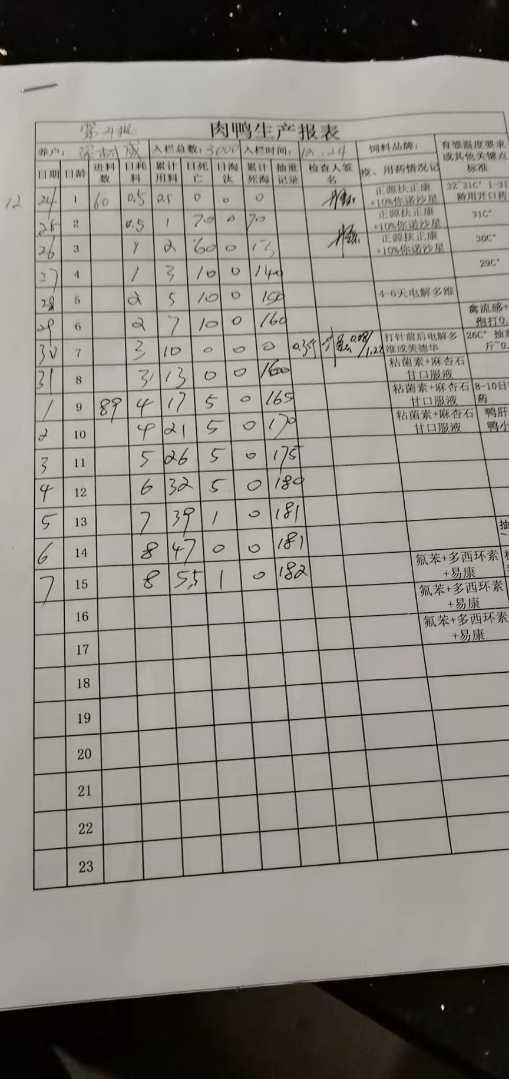 第4批 肉鸭生产报表
养户: 入栏总数: 3000 入栏时间: 12.24 饲料品牌: 有雏温度要求或其他关键点标准
日期 日龄 进料数 日耗料 累计用料 日死亡 日淘汰 累计死淘 抽重记录 检查人签名 疫、用药情况记
12 24 1 60 0.5 0.5 0 0 0 正源扶正康+10%你诺沙星 32~31C° 1-3日 龄用开口药
25 2 0.5 1 70 0 70 正源扶正康+10%你诺沙星 31C°
26 3 1 2 60 0 13 正源扶正康+10%你诺沙星 30C°
27 4 1 3 10 0 140 29C°
28 5 2 5 10 0 150 4-6天电解多维
29 6 2 7 10 0 160 禽流感+
30 7 3 10 0 0 0 打针前后电解多维或美德华 26C°
31 8 3 13 0 0 160 粘菌素+麻杏石甘口服液
1 9 89 4 17 5 0 165 粘菌素+麻杏石甘口服液 8-10日 药
2 10 4 21 5 0 170 粘菌素+麻杏石甘口服液 鸭肝 鸭小
3 11 5 26 5 0 175
4 12 6 32 5 0 180
5 13 7 39 1 0 181
6 14 8 47 0 0 181 抽
7 15 8 55 1 0 182 氟苯+多西环素+易康
16 氟苯+多西环素+易康
17 氟苯+多西环素+易康
18
19
20
21
22
23